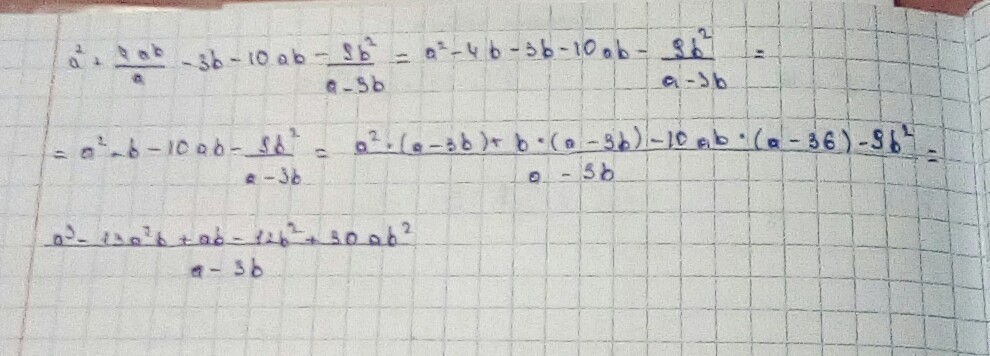 a² + 4ab/a - 3b - 10ab - 9b²/a-3b = a² - 4b - 3b - 10ab - 9b²/a-3b =
= a² - b - 10ab - 9b²/a-3b = a²·(a-3b) + b·(a-3b) - 10ab·(a-3b) - 9b²/a-3b =
a³ - 13a²b + ab - 12b² + 30ab²/a-3b